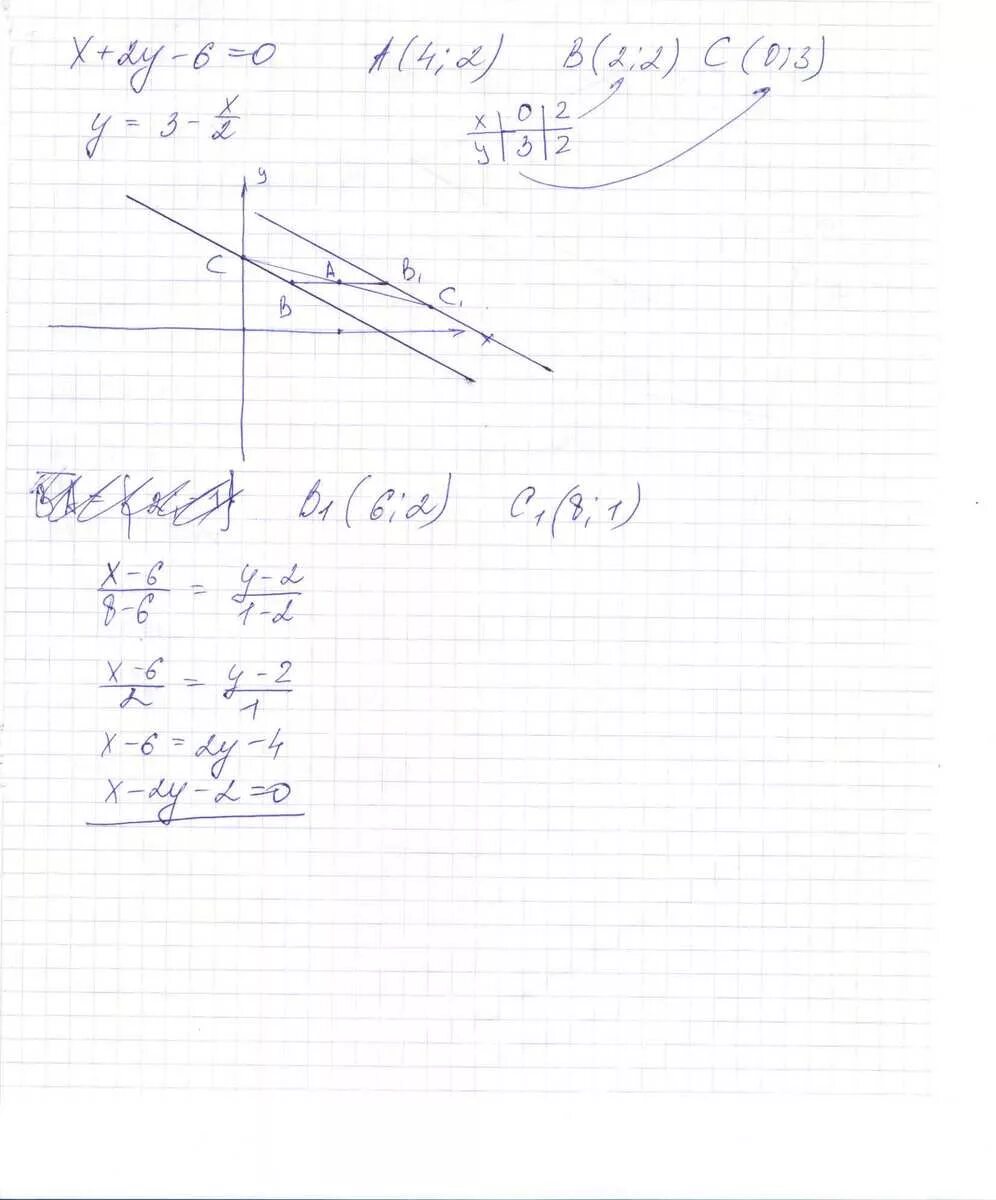 x+2y-6=0 A(4;2) B(2;2) C(0;3)
y = 3 - x/2
x | 0 | 2
y | 3 | 2
y
C A B1
B C1
x
B1(6;2) C1(8;1)
(x-6)/(8-6) = (y-2)/(1-2)
(x-6)/2 = (y-2)/1
x-6=2y-4
x-2y-2=0